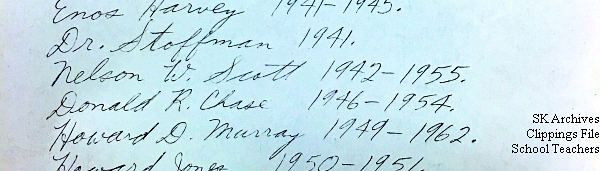 Enos Harvey 1941-1945.
Dr. Stoffman 1941.
Nelson W. Scott 1942-1955.
Donald R. Chase 1946-1954.
Howard D. Murray 1949-1962.
Howard Jones 1950-1951.
SK Archives
Clippings File
School Teachers